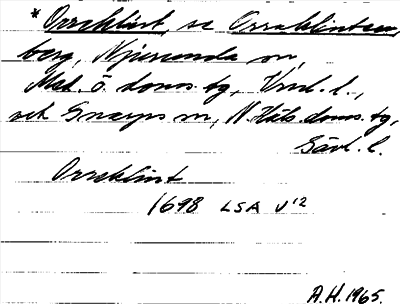 * Orreklint, se Orreklinten,
berg, Njurunda sn,
Med. ö. doms. tg, Vnl. l.,
och Gnarps sn, N. Häls. doms. tg,
Gävl. l.
Orreklint
1698 LSA V¹²
A.H. 1965.